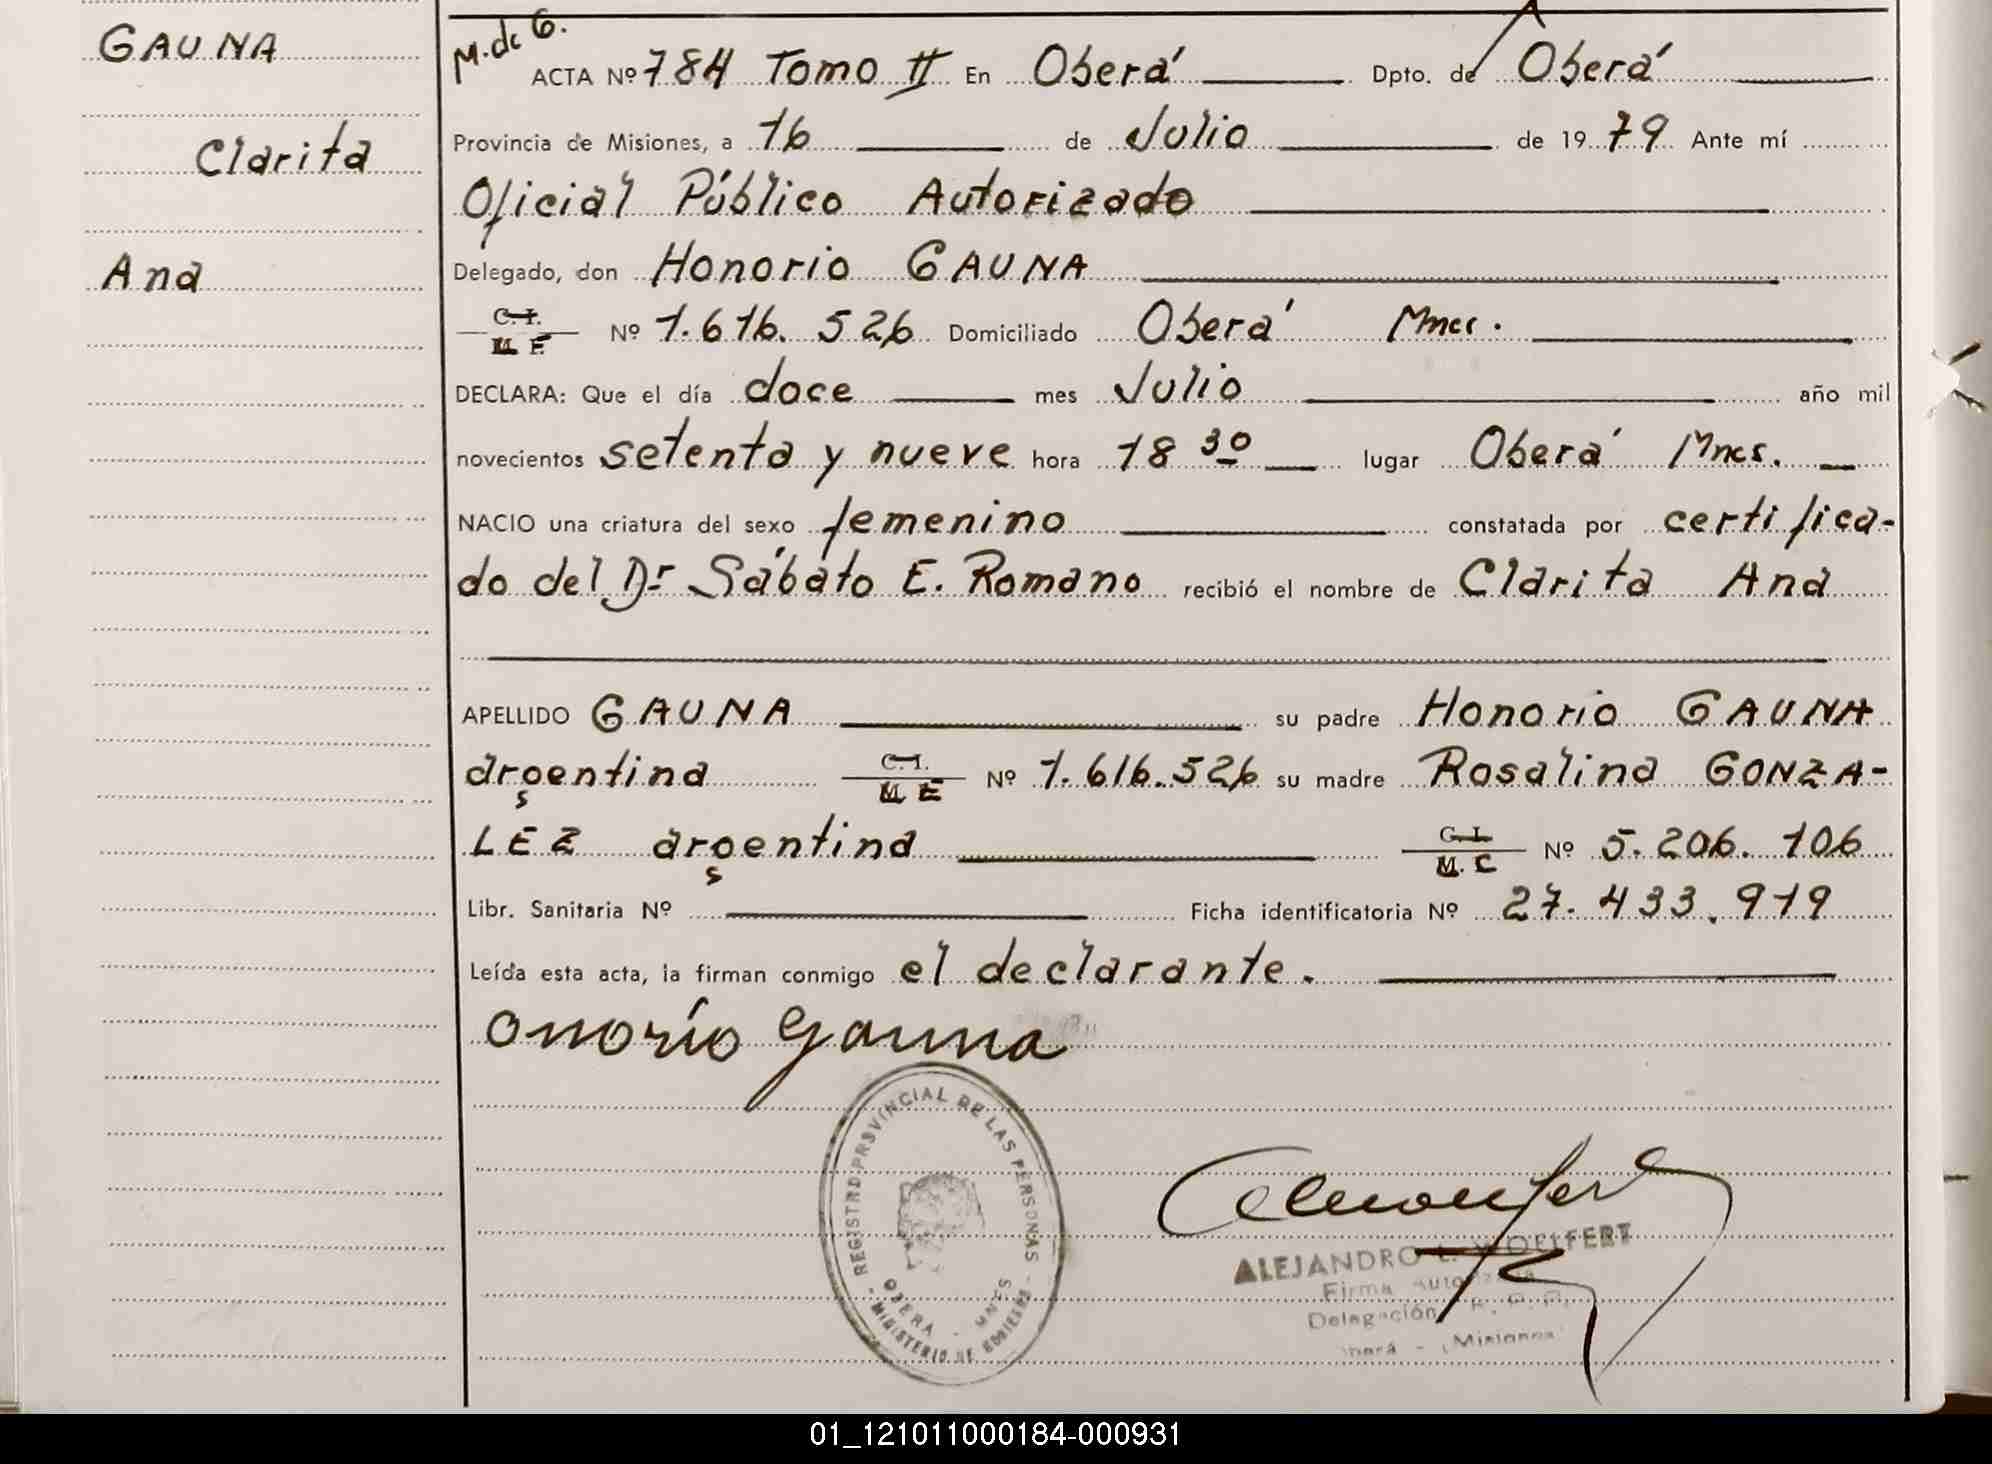 GAUNA
Clarita
Ana
M. de G.
ACTA Nº 784 Tomo II En Oberá Dpto. de Oberá
Provincia de Misiones, a 16 de Julio de 1979 Ante mí
Oficial Público Autorizado
Delegado, don Honorio GAUNA
C. I.
M E. Nº 1.616.526 Domiciliado Oberá Mnes.
DECLARA: Que el día doce mes Julio año mil
novecientos setenta y nueve hora 18 30 lugar Oberá Mnes.
NACIO una criatura del sexo femenino constatada por certifica-
do del Dr Sábato E. Romano recibió el nombre de Clarita Ana
APELLIDO GAUNA su padre Honorio GAUNA
argentina C. I.
M E Nº 1.616.526 su madre Rosalina GONZA-
LEZ argentina C. I.
M. C Nº 5.206.106
Libr. Sanitaria Nº Ficha identificatoria Nº 27.433.919
Leída esta acta, la firman conmigo el declarante.
Onorio Gauna
REGISTRO PROVINCIAL DE LAS PERSONAS
OBERA - MNES
MINISTERIO DE GOBIERNO
ALEJANDRO L. WOLFFERT
Firma Autorizada
Delegación R. P. P.
Oberá - Misiones
01_121011000184-000931